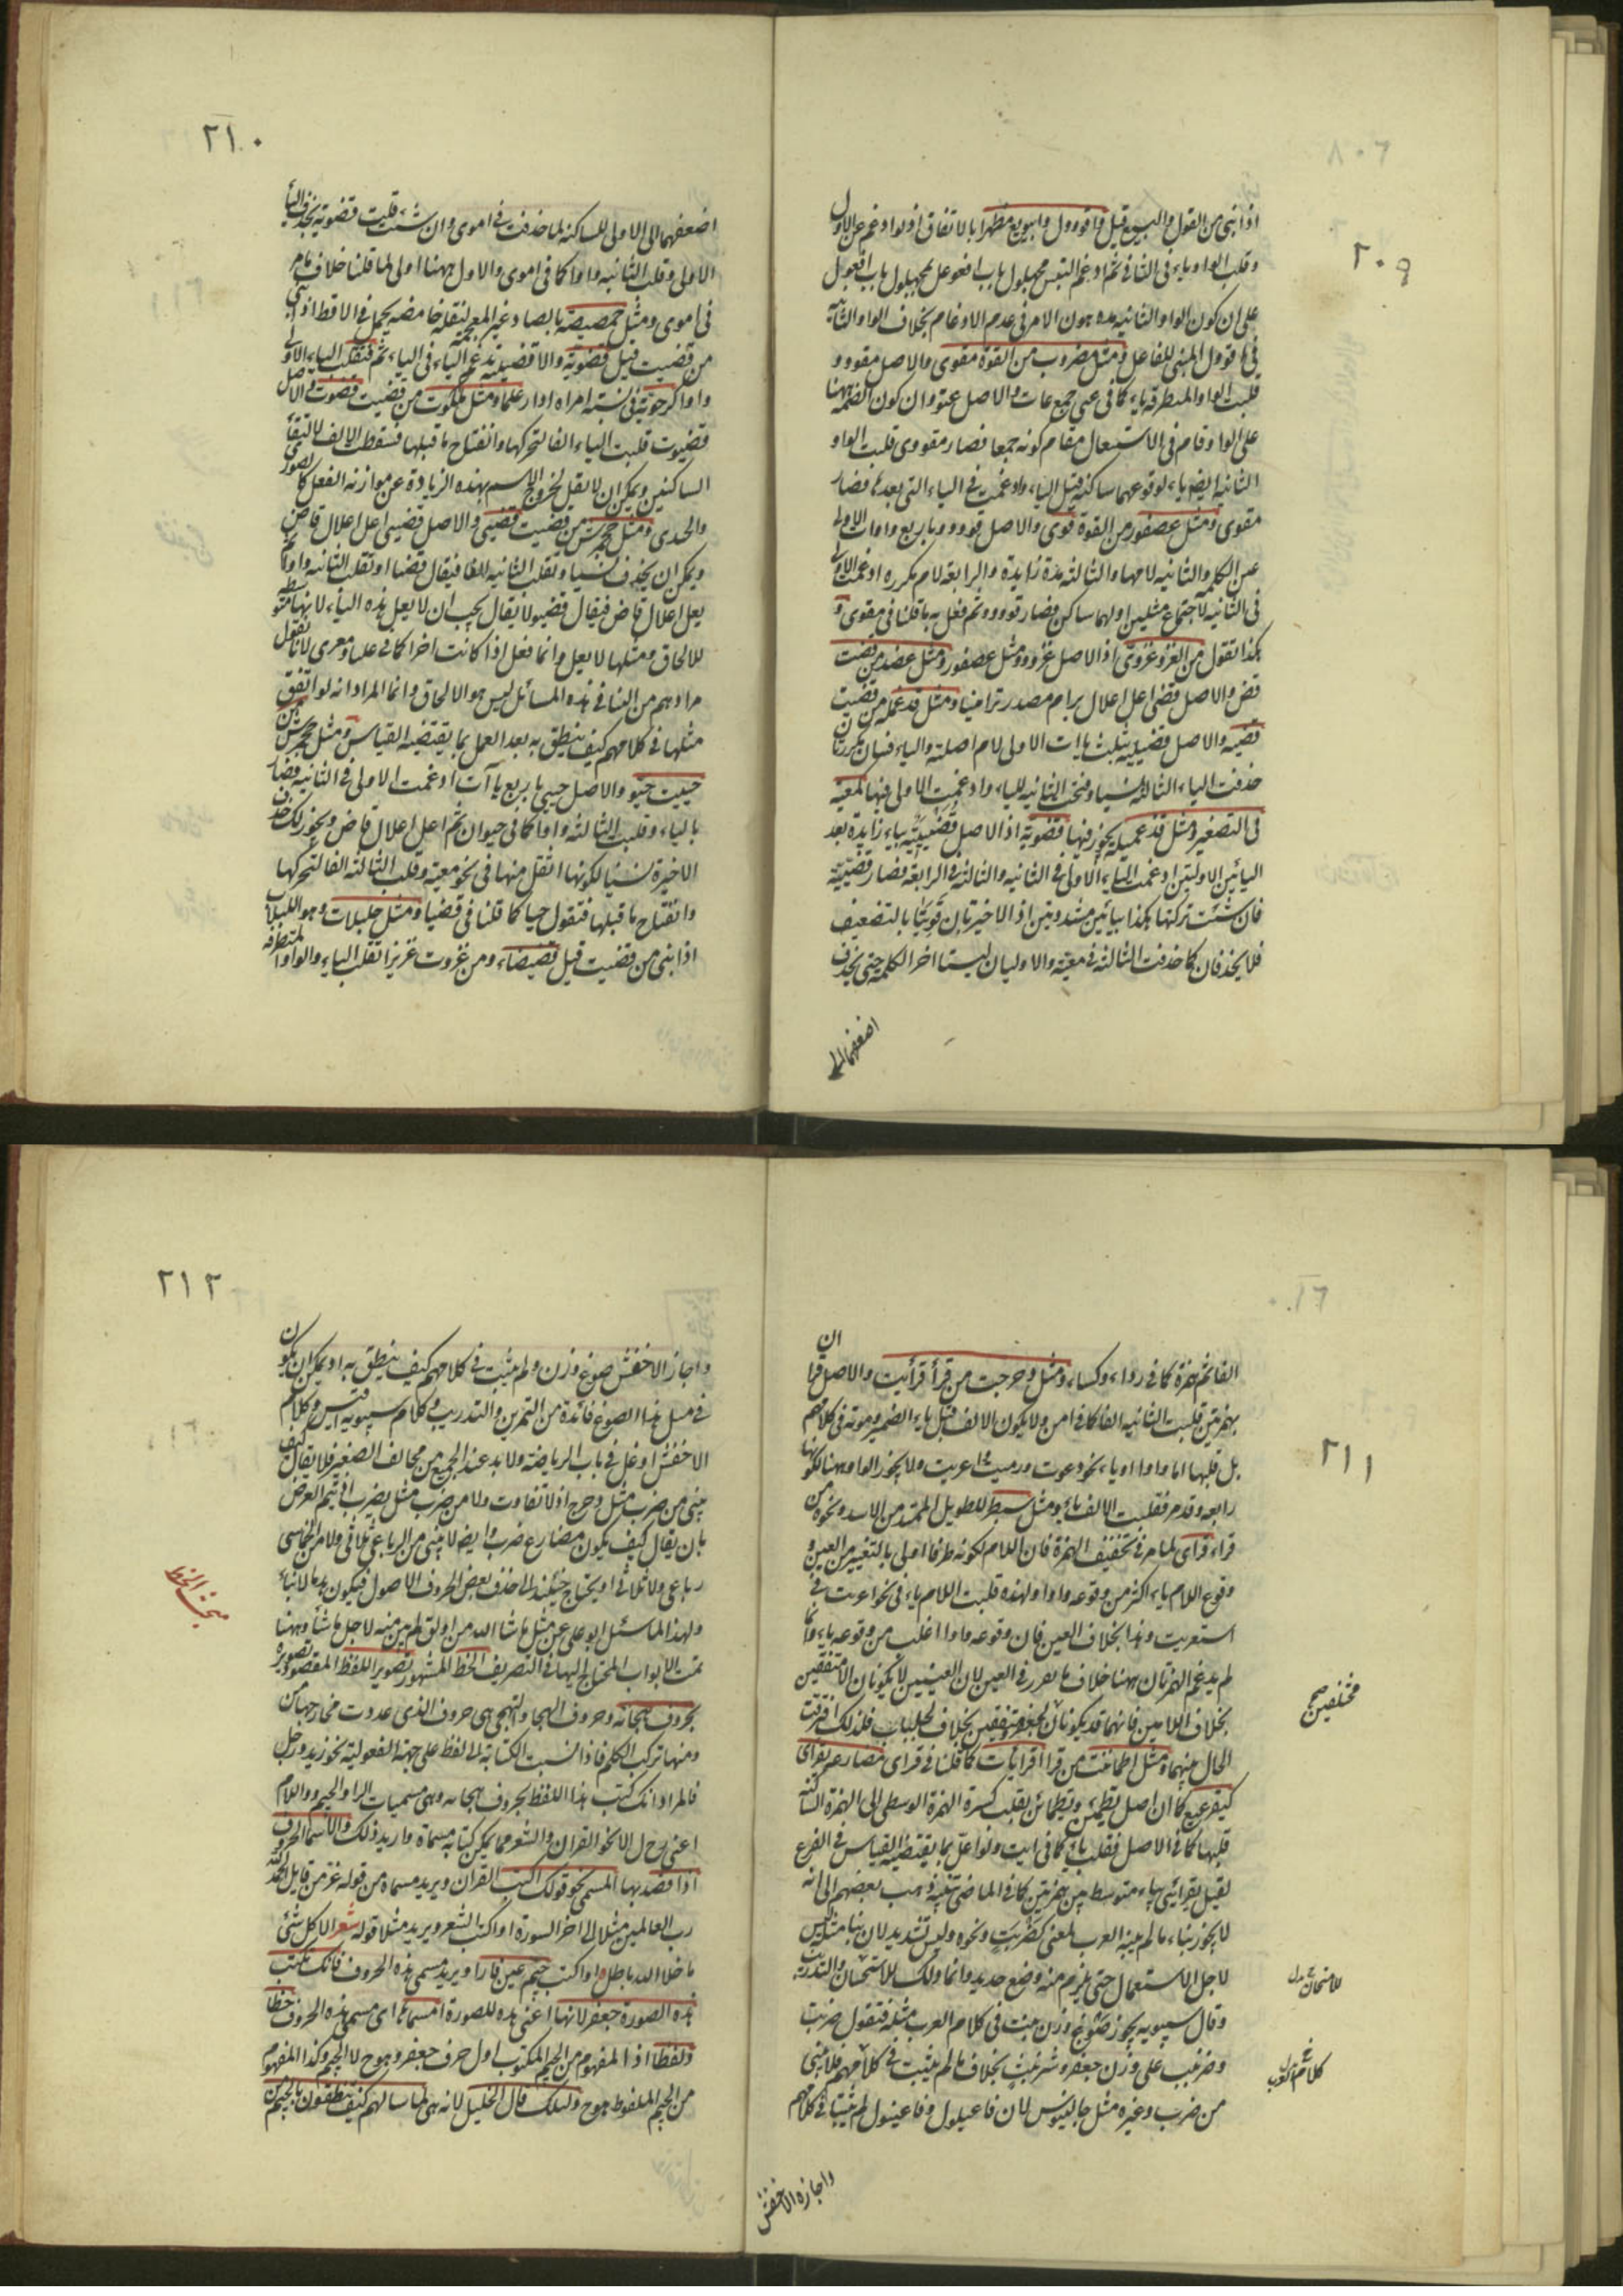 ٢٠٩
اذا بنى من القول والبيع قيل واقووول وابيويع مظهرا بالاتفاق اذ لو ادغم عن الاول
وقلب الواو ياء فى الثانى ثم ادغم التبس مجهول باب افعوعل بمجهول باب افعول
على ان كون الواو الثانيه مده هون الامر فى عدم الادغام بخلاف الواو الثانيه
فى اقوول المبنى للفاعل ومثل مضروب من القوة مقوى والاصل مقووو
قلبت الواو المتطرفه ياء كما فى عتى جمع عات والاصل عتوو وان كون الضمه هنا
على الواو قام فى الاستثقال مقام كونه جمعا فصار مقووى قلبت الواو
الثانيه ايضا ياء لوقوعها ساكنه قبل الياء وادغمت فى الياء التى بعدها فصار
مقوى ومثل عصفور من القوة قوى والاصل قوووو باربع واوات الاولى
عين الكلمه والثانيه لامها والثالثه مدة زايدة والرابعه لام مكرره ادغمت الاولى
فى الثانيه لاجتماع مثلين اولهما ساكن فصار قوووو ثم فعل به ما قلنا فى مقوى و
هكذا تقول من الغزو غزوى اذ الاصل غزووو ومثل عصفور ومثل عضد من قضيت
قض والاصل قضى اعل اعلال برام مصدر ترامينا ومثل قذعمله من قضيت
قضيه والاصل قضييية بثلث ياات الاولى لام اصلية والياء فيان مكررتان
حذفت الياء الثالثه نسيا وفتحت الثانيه للياء وادغمت الاولى فيها كمعية
فى التصغير ومثل قذعميلة يجوز فيها قضوية اذ الاصل قضيييية بياء زايدة بعد
اليائين الاوليتين ادغمت الياء الاولى فى الثانيه والثالثه فى الرابعه فصار قضيية
فان شئت تركتها هكذا بيائين مشددتين اذ الاخيرتان قويتا بالتضعيف
فلا يحذفان كما حذفت الثالثه فى معية والاوليان ليستا اخر الكلمه حتى يحذف
اضعفهما الى
٢١٠
اضعفهما الى الاولى للساكنه لما حذفت فى اموى وان شئت قلبت قضوية بحذف الياء
الاولى وقلب الثانيه واوا كما فى اموى والاول ههنا اولى لما قلنا خلاف ما مر
فى اموى ومثل حمصيصة بالصاد غير المعجمه لبقله حامضه يجعل فى الاقط اذا بنى
من قضيت قيل قضوية والاقضيية تدغم الياء فى الياء ثم فتقلب الياء الاولى
واوا كرحوية فى نسبة امراه او ارعلما ومثل ملكوت من قضيت قضوت والاصل
قضيوت قلبت الياء الفا لتحركها وانفتاح ما قبلها فسقط الالف لالتقاء
الساكنين ويمكن ان لا يقل لخروج الاسم بهذه الزيادة عن موازنه الفعل كالصورى
والحيدى ومثل جحمرش من قضيت قضيى والاصل قضييى اعل اعلال قاض
ويمكن ان يحذف نسيا وتقلب الثانيه الفا فيقال قضيا او تقلب الثانيه واوا ثم
يعل اعلال قاض فيقال قضيو لا يقال يجب ان لا يعل هذه الياء لانها متوسطه
للالحاق ومثلها لا يعل وانما فعل اذا كانت اخرا كما فى علبا ومعرى لانا نقول
مرادهم من البنا فى هذه المسائل ليس هو الالحاق وانما المراد انه لو اتفق
مثلها فى كلامهم كيف ينطق به بعد العمل بما يقتضيه القياس ومثل جحمرش من
حييت حيو والاصل حييى باربع ياآت ادغمت الاولى فى الثانيه فصار
بالياء وقلبت الثالثه واوا كما فى حيوان ثم اعل اعلال قاض ويجوز لك حذف
الاخيرة نسيا لكونها اثقل منها فى نحو معية وقلب الثالثه الفا لتحركها
وانفتاح ما قبلها فتقول حيا كما قلنا فى قضيا ومثل حلبلاب وهو اللبلاب
اذا بنى من قضيت قيل قضيضاء ومن غزوت غزيزا تقلب الياء والواو المتطرفه
٢١١
الفا ثم همزة كما فى رداء وكساء ومثل دحرجت من قرأ قرأيت والاصل قرأأت
بهمزتين قلبت الثانيه الفا كما فى امن ولا يكون الالف قبل ياء الضمير وموته فى كلامهم
بل قلبها اما واوا او ياء نحو دعوت ورميت واعريت ولا يجوز الواو ههنا لكونها
رابعه وقدم فقلبت الالف ياء ومثل سبطر للطويل الممتد من الاسد ونحوه من
قراء قراى لما مر فى تخفيف الهمزة فان اللام لكونه طرفا اولى بالتغيير من العين و
وقوع اللام ياء اكثر من وقوعه واوا ولهذه قلبت اللام ياء فى نحو اعريت فى
استعريت وهذا بخلاف العين فان وقوعه واوا اغلب من وقوعه ياء وانما
لم يدغم الهمزتان ههنا خلاف ما تقرر فى العين لان العينين لا يكونان الا متفقتين
بخلاف اللامين فانهما قد يكونان كجعفر متفقين بخلاف لجلباب فلذلك افترقت
الحال بينهما ومثل اطمأننت من قرا اقرايات كما قلنا فى قراى فمضارعه يقراى
كيقرعيع كما ان اصل يطمئن ويطمائن بقلب كسرة الهمزة الوسطى الى الهمزة الساكنه
قبلها كما فى الاصل فقلب ياء كما فى ايت ولو اعل بما يقتضيه القياس فى الفرع
لقيل يقرائى بياء متوسط بين همزتين كما فى الماضى تنبيه ذهب بعضهم الى انه
لا يجوز بناء ما لم يبنه العرب لمعنى كضربب ونحوه وليس تشديد لان بناء مثله ليس
لاجل الاستعمال حتى يلزم منه وضع جديد وانما ذلك للاستحسان والتدريب
وقال سيبويه يجوز صوغ وزن ثبت فى كلام العرب مثله فتقول ضربب
وضرنبب على وزن جعفر وشرنبث بخلاف ما لم يثبت فى كلامهم فلا يبنى
من ضرب وغيره مثل جالينوس لان فاعيلول وفاعينول لم يثبتا فى كلامهم
مختلفين صح
للامتحان بدل
كلام العرب
واجازه الاخفش
٢١٢
واجاز الاخفش صوغ وزن ولم يثبت فى كلامهم كيف ينطق به او يمكن ان يكون
فى مسل هذا الصوغ فائدة من التمرين والتدريب وكلام سيبويه اقيس وكلام
الاخفش اوغل فى باب الرياضة ولا بد عند الجميع من مخالف الصغير فلا يقال كيف
يبنى من ضرب مثل دحرج اذ لا تفاوت ولا من ضرب مثل يضرب اذ يتم الغرض
بان يقال كيف يكون مضارع ضرب وايضا لا يبنى من الرباعى ثلاثى ولا من الخماسى
رباعى ولا ثلاثى او يحتاج حينئذ الى حذف بعض الحروف الاصول فيكون هدما لا بناء
ولهذا لما سئل ابو على عن مثل ما شا الله من اولق لم يبن منه لاجل ما شا وههنا
تمت الابواب المحتاج اليها فى التصريف الخط المشهور تصوير اللفظ المقصود تصويره
بحروف هجائه وحروف الهجا والتهجى هى حروف الذى عددت مخارجها من
ومنها تركب الكلم فاذا نسبت الكتابة الى لفظ على جهة المفعولية نحو زيد ورجل
فالمراد انك كتب هذا اللفظ بحروف هجائه وهى مسميات الرا والجيم واللام
اعنى رح ل الا نحو القران والشعر مما يمكن كتابه مسماه واريد ذلك والاسما الحروف
اذا قصد بها المسمى نحو قولك اكتب القران ويريد مسماه من قوله عز من قايل الحمد لله
رب العالمين مثلا الى اخر السورة او اكتب الشعر ويريد مثلا قوله شعر الا كل شئ
ما خلا الله باطل او اكتب جيم عين فا را ويريد مسمى هذه الحروف فانك تكتب
هذه الصورة جعفر لانها اعنى هذه الصورة مسماها اى مسمى هذه الحروف خطا
ولفظا اذ المفهوم من الجيم المكتوب اول حرف جعفر وهو ج لا الجيم وكذا المفهوم
من الجيم الملفوظ هو ج ولذلك قال الخليل لانه هى لما سالهم كيف تنطقون بالجيم من
بحث الخط